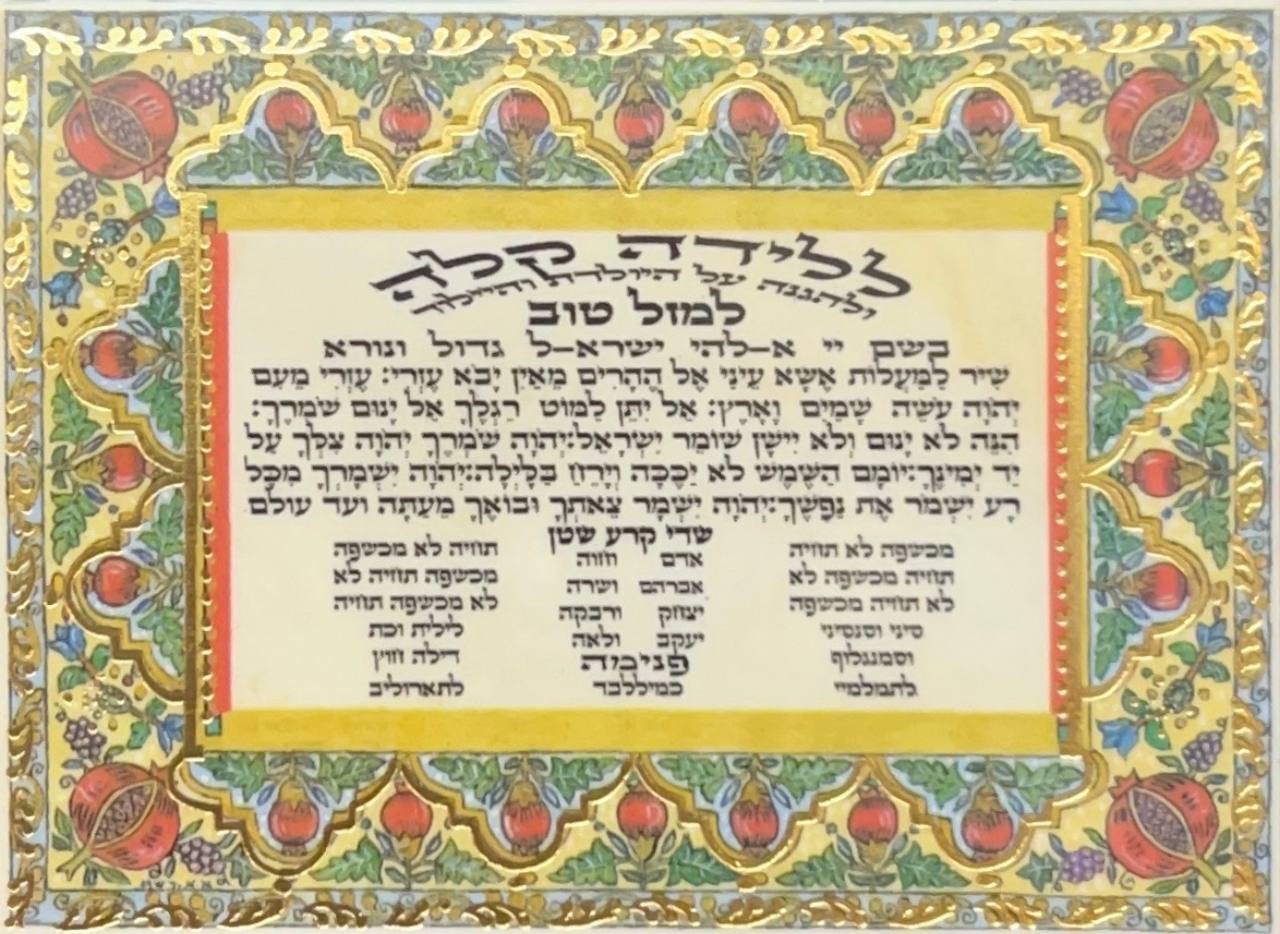 ללידה קלה
ולהגנה על היולדת והיילוד
למזל טוב
בשם יי א-להי ישרא-ל גדול ונורא
שִׁיר לַמַּעֲלוֹת אֶשָּׂא עֵינַי אֶל הֶהָרִים מֵאַיִן יָבֹא עֶזְרִי: עֶזְרִי מֵעִם
יְהֹוָה עֹשֵׂה שָׁמַיִם וָאָרֶץ: אַל יִתֵּן לַמּוֹט רַגְלֶךָ אַל יָנוּם שֹׁמְרֶךָ:
הִנֵּה לֹא יָנוּם וְלֹא יִישָׁן שׁוֹמֵר יִשְׂרָאֵל:יְהֹוָה שֹׁמְרֶךָ יְהֹוָה צִלְּךָ עַל
יַד יְמִינֶךָ:יוֹמָם הַשֶּׁמֶשׁ לֹא יַכֶּכָּה וְיָרֵחַ בַּלָּיְלָה:יְהֹוָה יִשְׁמָרְךָ מִכָּל
רָע יִשְׁמֹר אֶת נַפְשֶׁךָ:יְהֹוָה יִשְׁמָר צֵאתְךָ וּבוֹאֶךָ מֵעַתָּה ועד עולם
שדי קרע שטן
מכשפה לא תחיה
תחיה מכשפה לא
לא תחיה מכשפה
סיני וסנסיני
וסמנגלוף
לתמלמיי
אדם וחוה
אברהם ושרה
יצחק ורבקה
יעקב ולאה
פנימה
כמיללבד
תחיה לא מכשפה
מכשפה תחיה לא
לא מכשפה תחיה
לילית וכת
דילה חוץ
לתארוליב